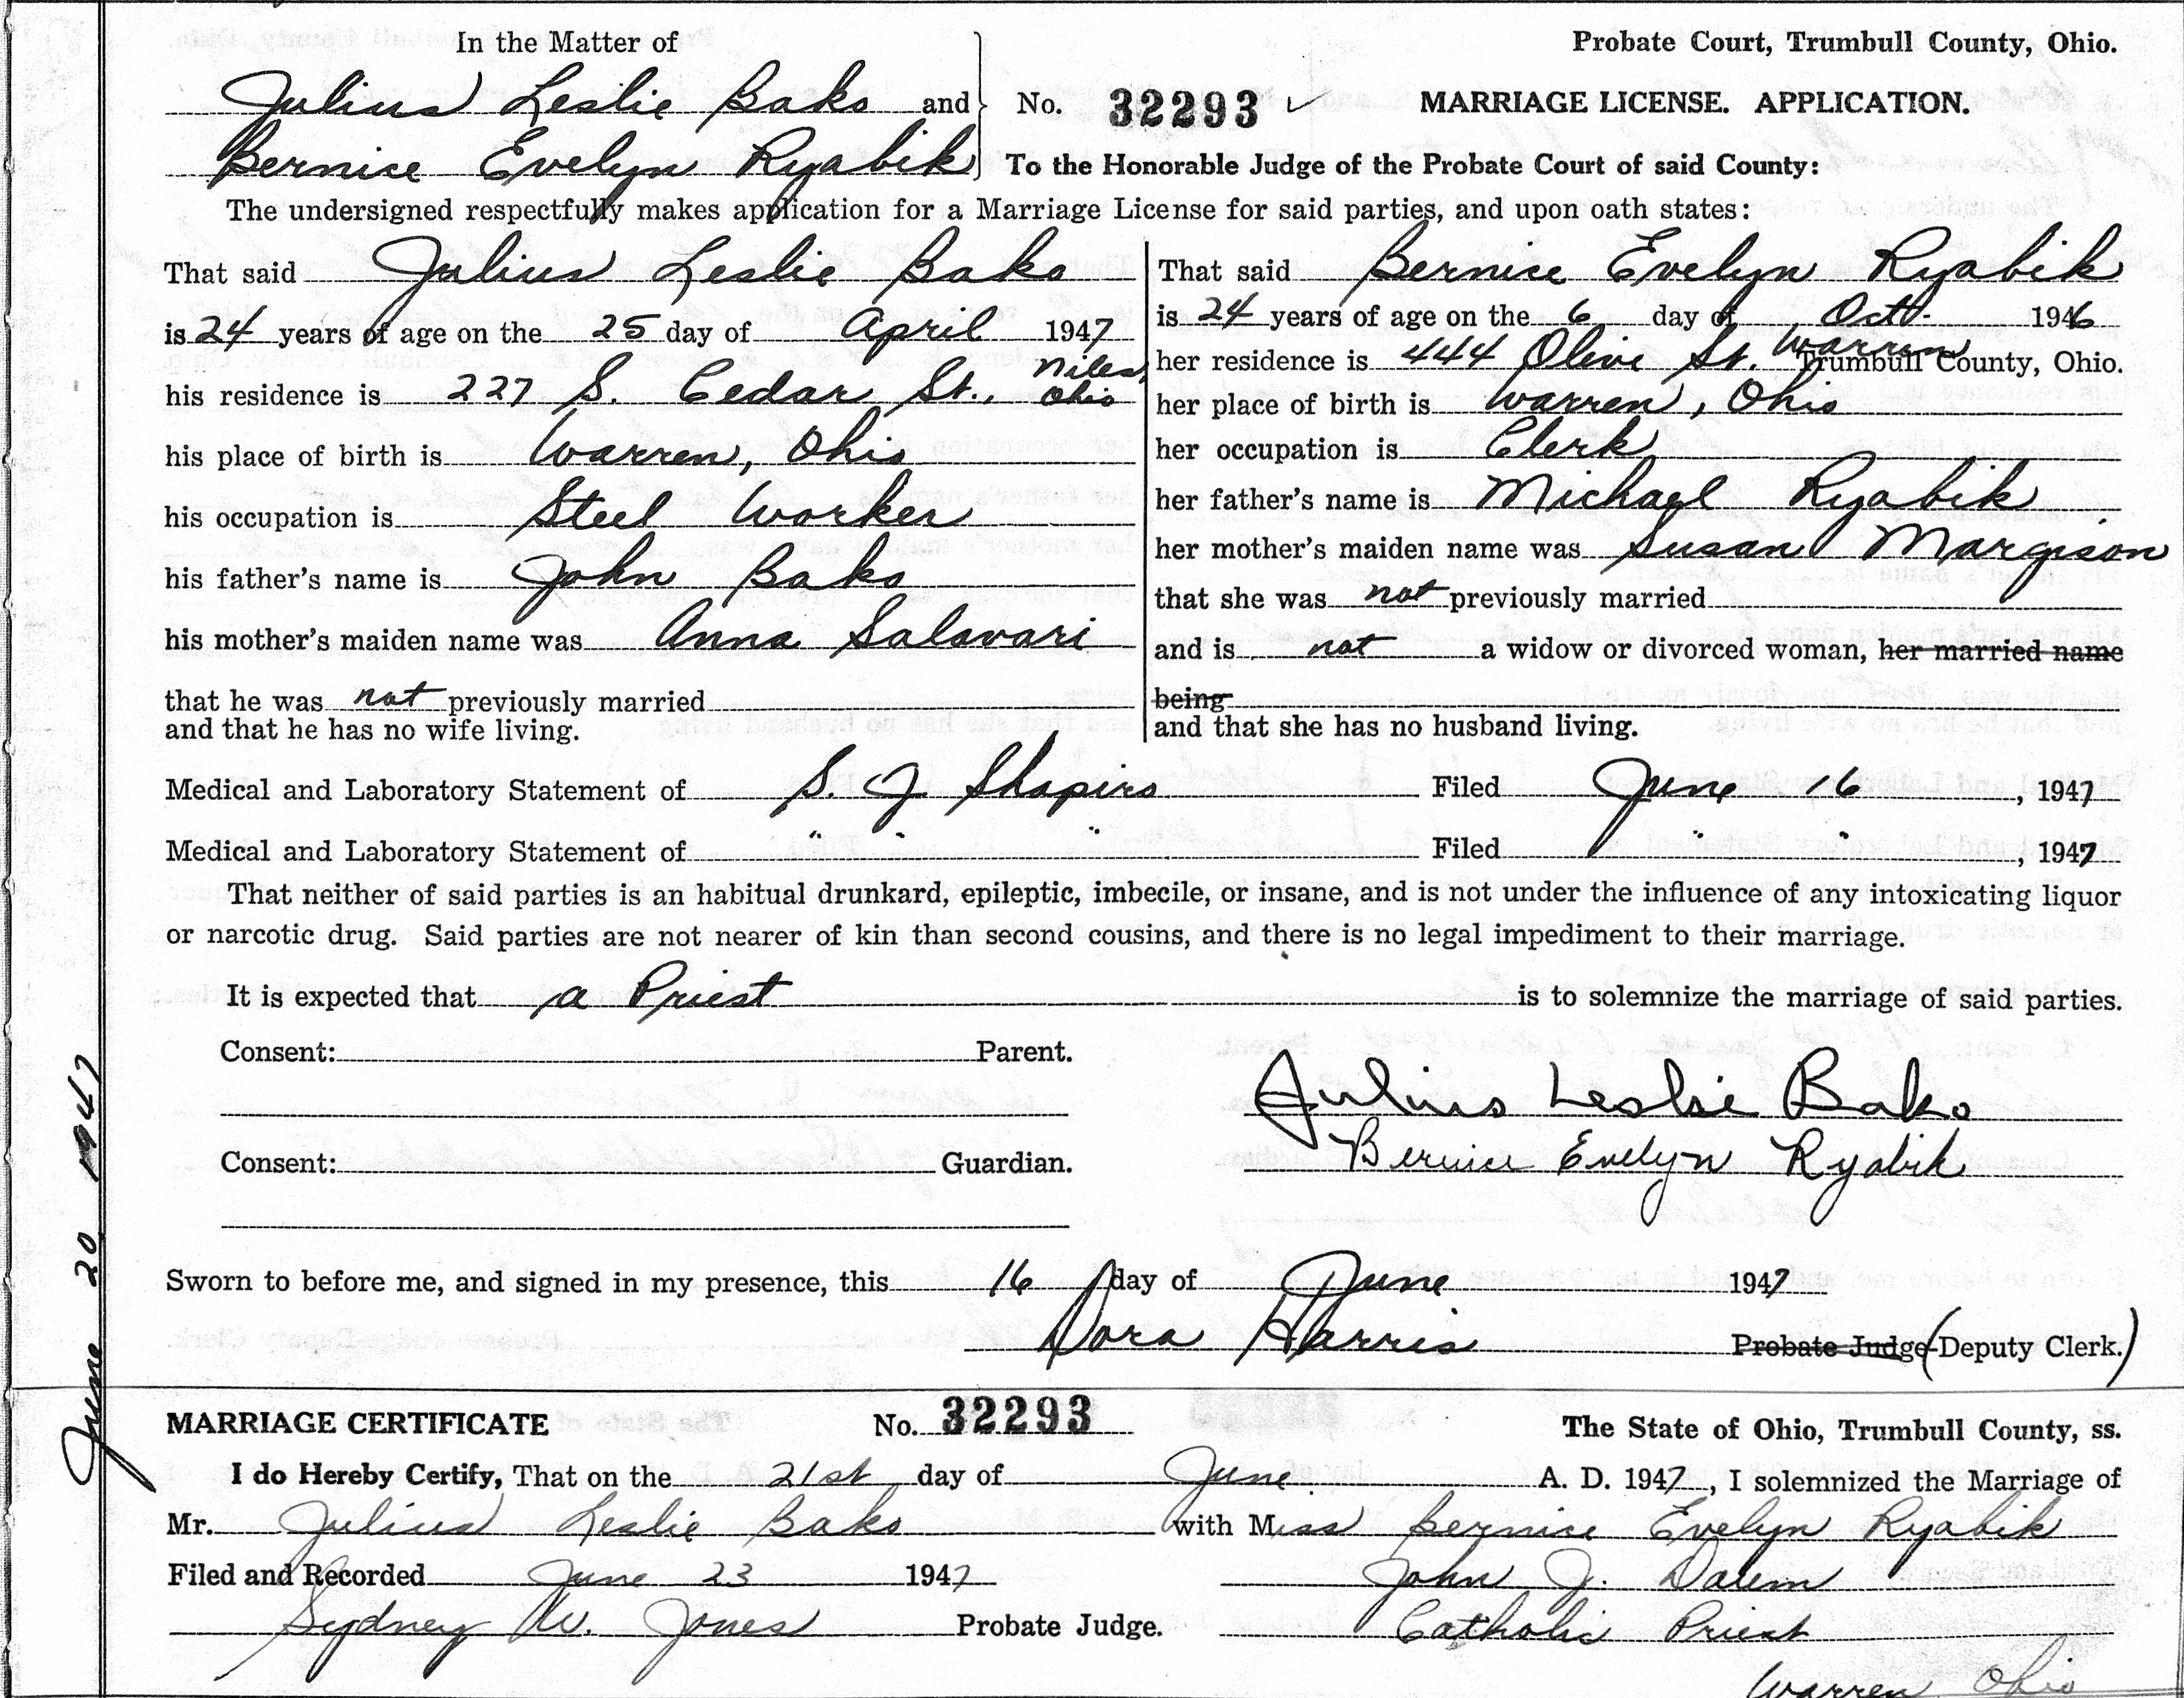 In the Matter of
Probate Court, Trumbull County, Ohio.
Julius Leslie Bako and
No. 32293 ✓ MARRIAGE LICENSE. APPLICATION.
Bernice Evelyn Ryabik
To the Honorable Judge of the Probate Court of said County:
The undersigned respectfully makes application for a Marriage License for said parties, and upon oath states:
That said Julius Leslie Bako
is 24 years of age on the 25 day of April 1947
his residence is 227 S. Cedar St., Niles, Ohio
his place of birth is Warren, Ohio
his occupation is Steel Worker
his father's name is John Bako
his mother's maiden name was Anna Salavari
that he was not previously married
and that he has no wife living.
That said Bernice Evelyn Ryabik
is 24 years of age on the 6 day of Oct. 1946
her residence is 444 Olive St. Warren Trumbull County, Ohio.
her place of birth is Warren, Ohio
her occupation is Clerk
her father's name is Michael Ryabik
her mother's maiden name was Susan Margison
that she was not previously married
and is not a widow or divorced woman, her married name
being
and that she has no husband living.
Medical and Laboratory Statement of S. J. Shapiro Filed June 16, 1947
Medical and Laboratory Statement of " " " Filed " ", 1947
That neither of said parties is an habitual drunkard, epileptic, imbecile, or insane, and is not under the influence of any intoxicating liquor
or narcotic drug. Said parties are not nearer of kin than second cousins, and there is no legal impediment to their marriage.
It is expected that a Priest is to solemnize the marriage of said parties.
Consent: Parent.
Julius Leslie Bako
Bernice Evelyn Ryabik
Consent: Guardian.
Sworn to before me, and signed in my presence, this 16 day of June 1947
Dora Harris Probate Judge-(Deputy Clerk.)
June 20 1947
MARRIAGE CERTIFICATE No. 32293 The State of Ohio, Trumbull County, ss.
I do Hereby Certify, That on the 21st day of June A. D. 1947, I solemnized the Marriage of
Mr. Julius Leslie Bako with Miss Bernice Evelyn Ryabik
Filed and Recorded June 23 1947 John J.
Sydney W. Jones Probate Judge. Catholic Priest
Warren Ohio